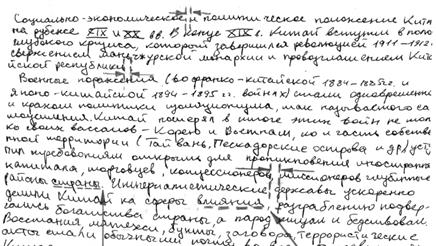 Социально-экономическое и политическое положение Кита
на рубеже XIX и XX вв. В конце XIX в. Китай вступил в поло
глубокого кризиса, который завершился революцией 1911-1912
свержением маньчжурской монархии и провозглашением Кита
йской республики.
Военные поражения (во франко-китайской 1884-1885гг. и
японо-китайской 1894-1895 гг. войнах) стали одновременно
и крахом политики изоляционизма, так называемого са
моусиления. Китай потерял в итоге этих войн не толь
ко своих вассалов - Корею и Вьетнам, но и часть собстве
нной территории (Тайвань, Пескадорские острова и други
требованиям открыть для проникновения иностранн
капитала, торговцев, концессионеров, миссионеров глубинные
районы страны. Империалистические державы ускоренно
делили Китай на сферы влияния, разграблению подвер
гались богатства страны, а народ нищал и бедствовал.
Восстания, мятежи, бунты, заговоры, террористические
акты стали обычными